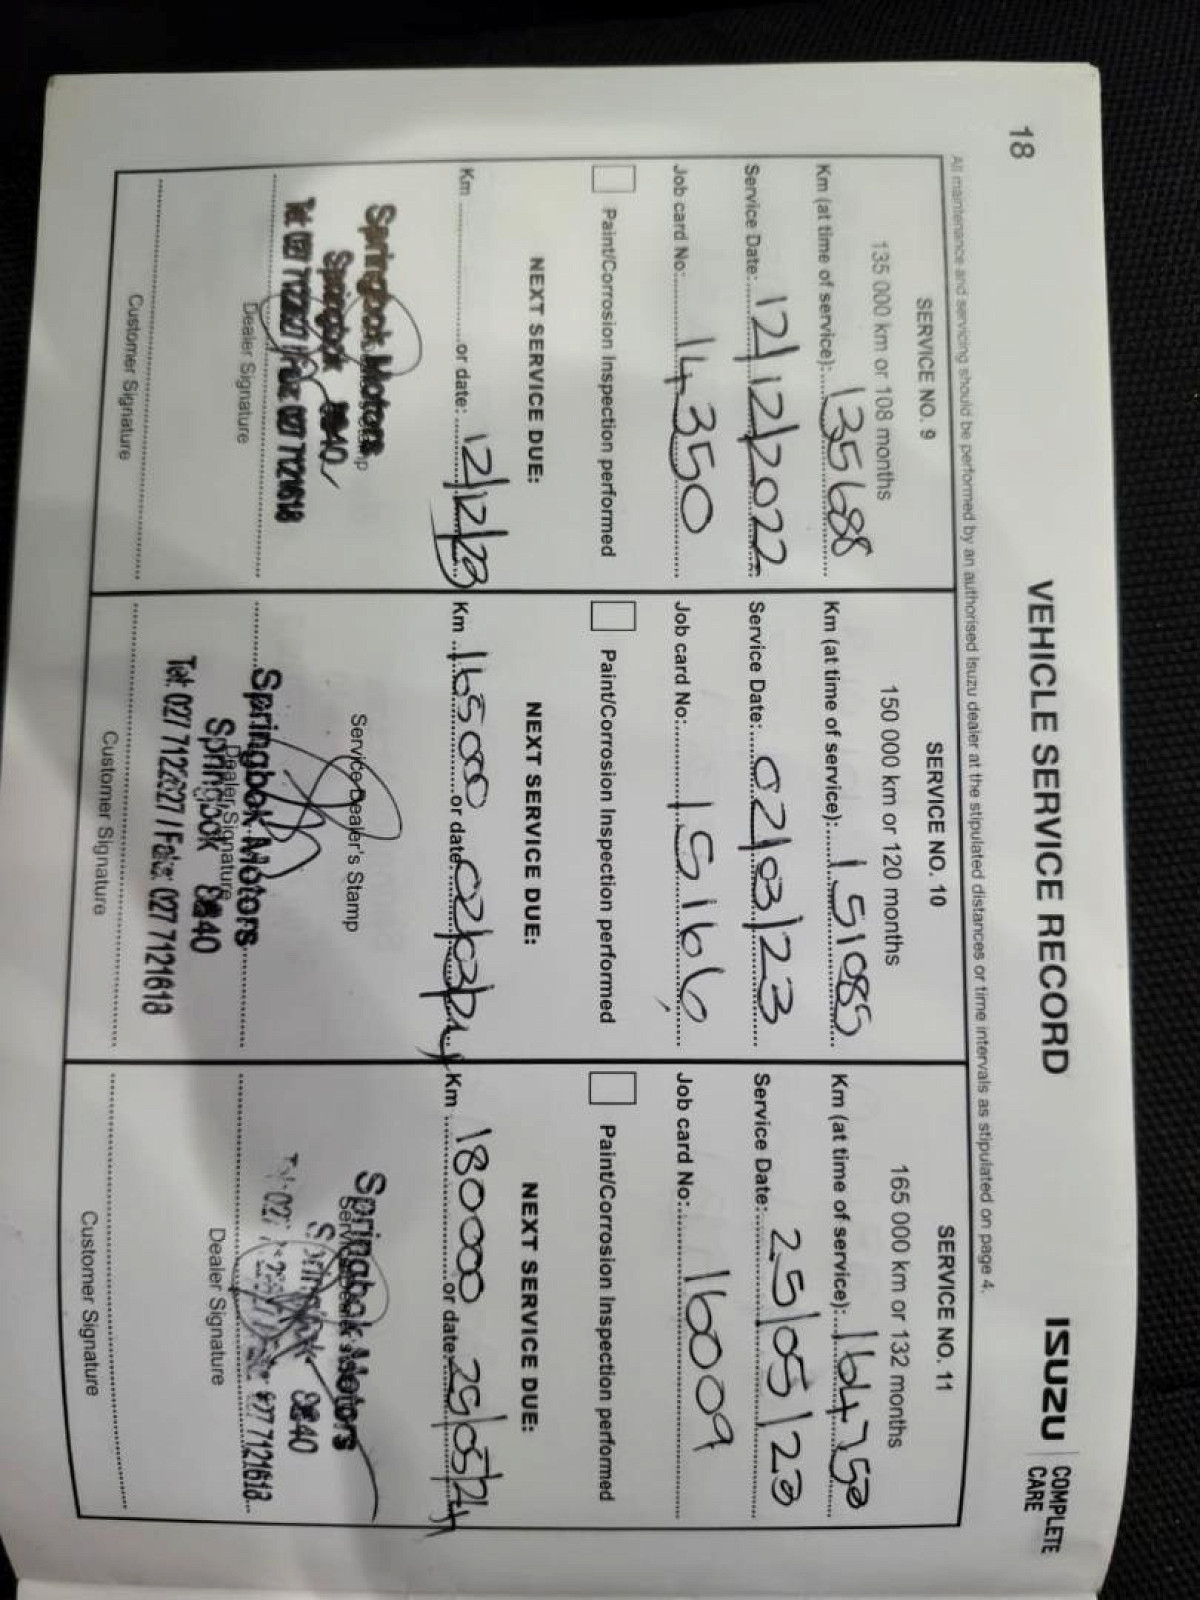 18
VEHICLE SERVICE RECORD
ISUZU
COMPLETE
CARE
All maintenance and servicing should be performed by an authorised Isuzu dealer at the stipulated distances or time intervals as stipulated on page 4.
SERVICE NO. 9
135 000 km or 108 months
Km (at time of service): 135688
Service Date: 12/12/2022
Job card No: 14350
Paint/Corrosion Inspection performed
NEXT SERVICE DUE:
Km or date: 12/12/23
Springbok Motors
Springbok 8240
Tel: 027 7122627 / Fax: 027 7121618
Dealer Signature
Customer Signature
SERVICE NO. 10
150 000 km or 120 months
Km (at time of service): 151085
Service Date: 02/03/23
Job card No: 15166
Paint/Corrosion Inspection performed
NEXT SERVICE DUE:
Km 165000 or date: 02/03/24
Service Dealer's Stamp
Springbok Motors
Dealer Signature
Springbok 8240
Tel: 027 7122627 / Faks: 027 7121618
Customer Signature
SERVICE NO. 11
165 000 km or 132 months
Km (at time of service): 164750
Service Date: 25/05/23
Job card No: 16009
Paint/Corrosion Inspection performed
NEXT SERVICE DUE:
Km 180000 or date: 25/05/24
Springbok Motors
Springbok 8240
027 7121618
Dealer Signature
Customer Signature